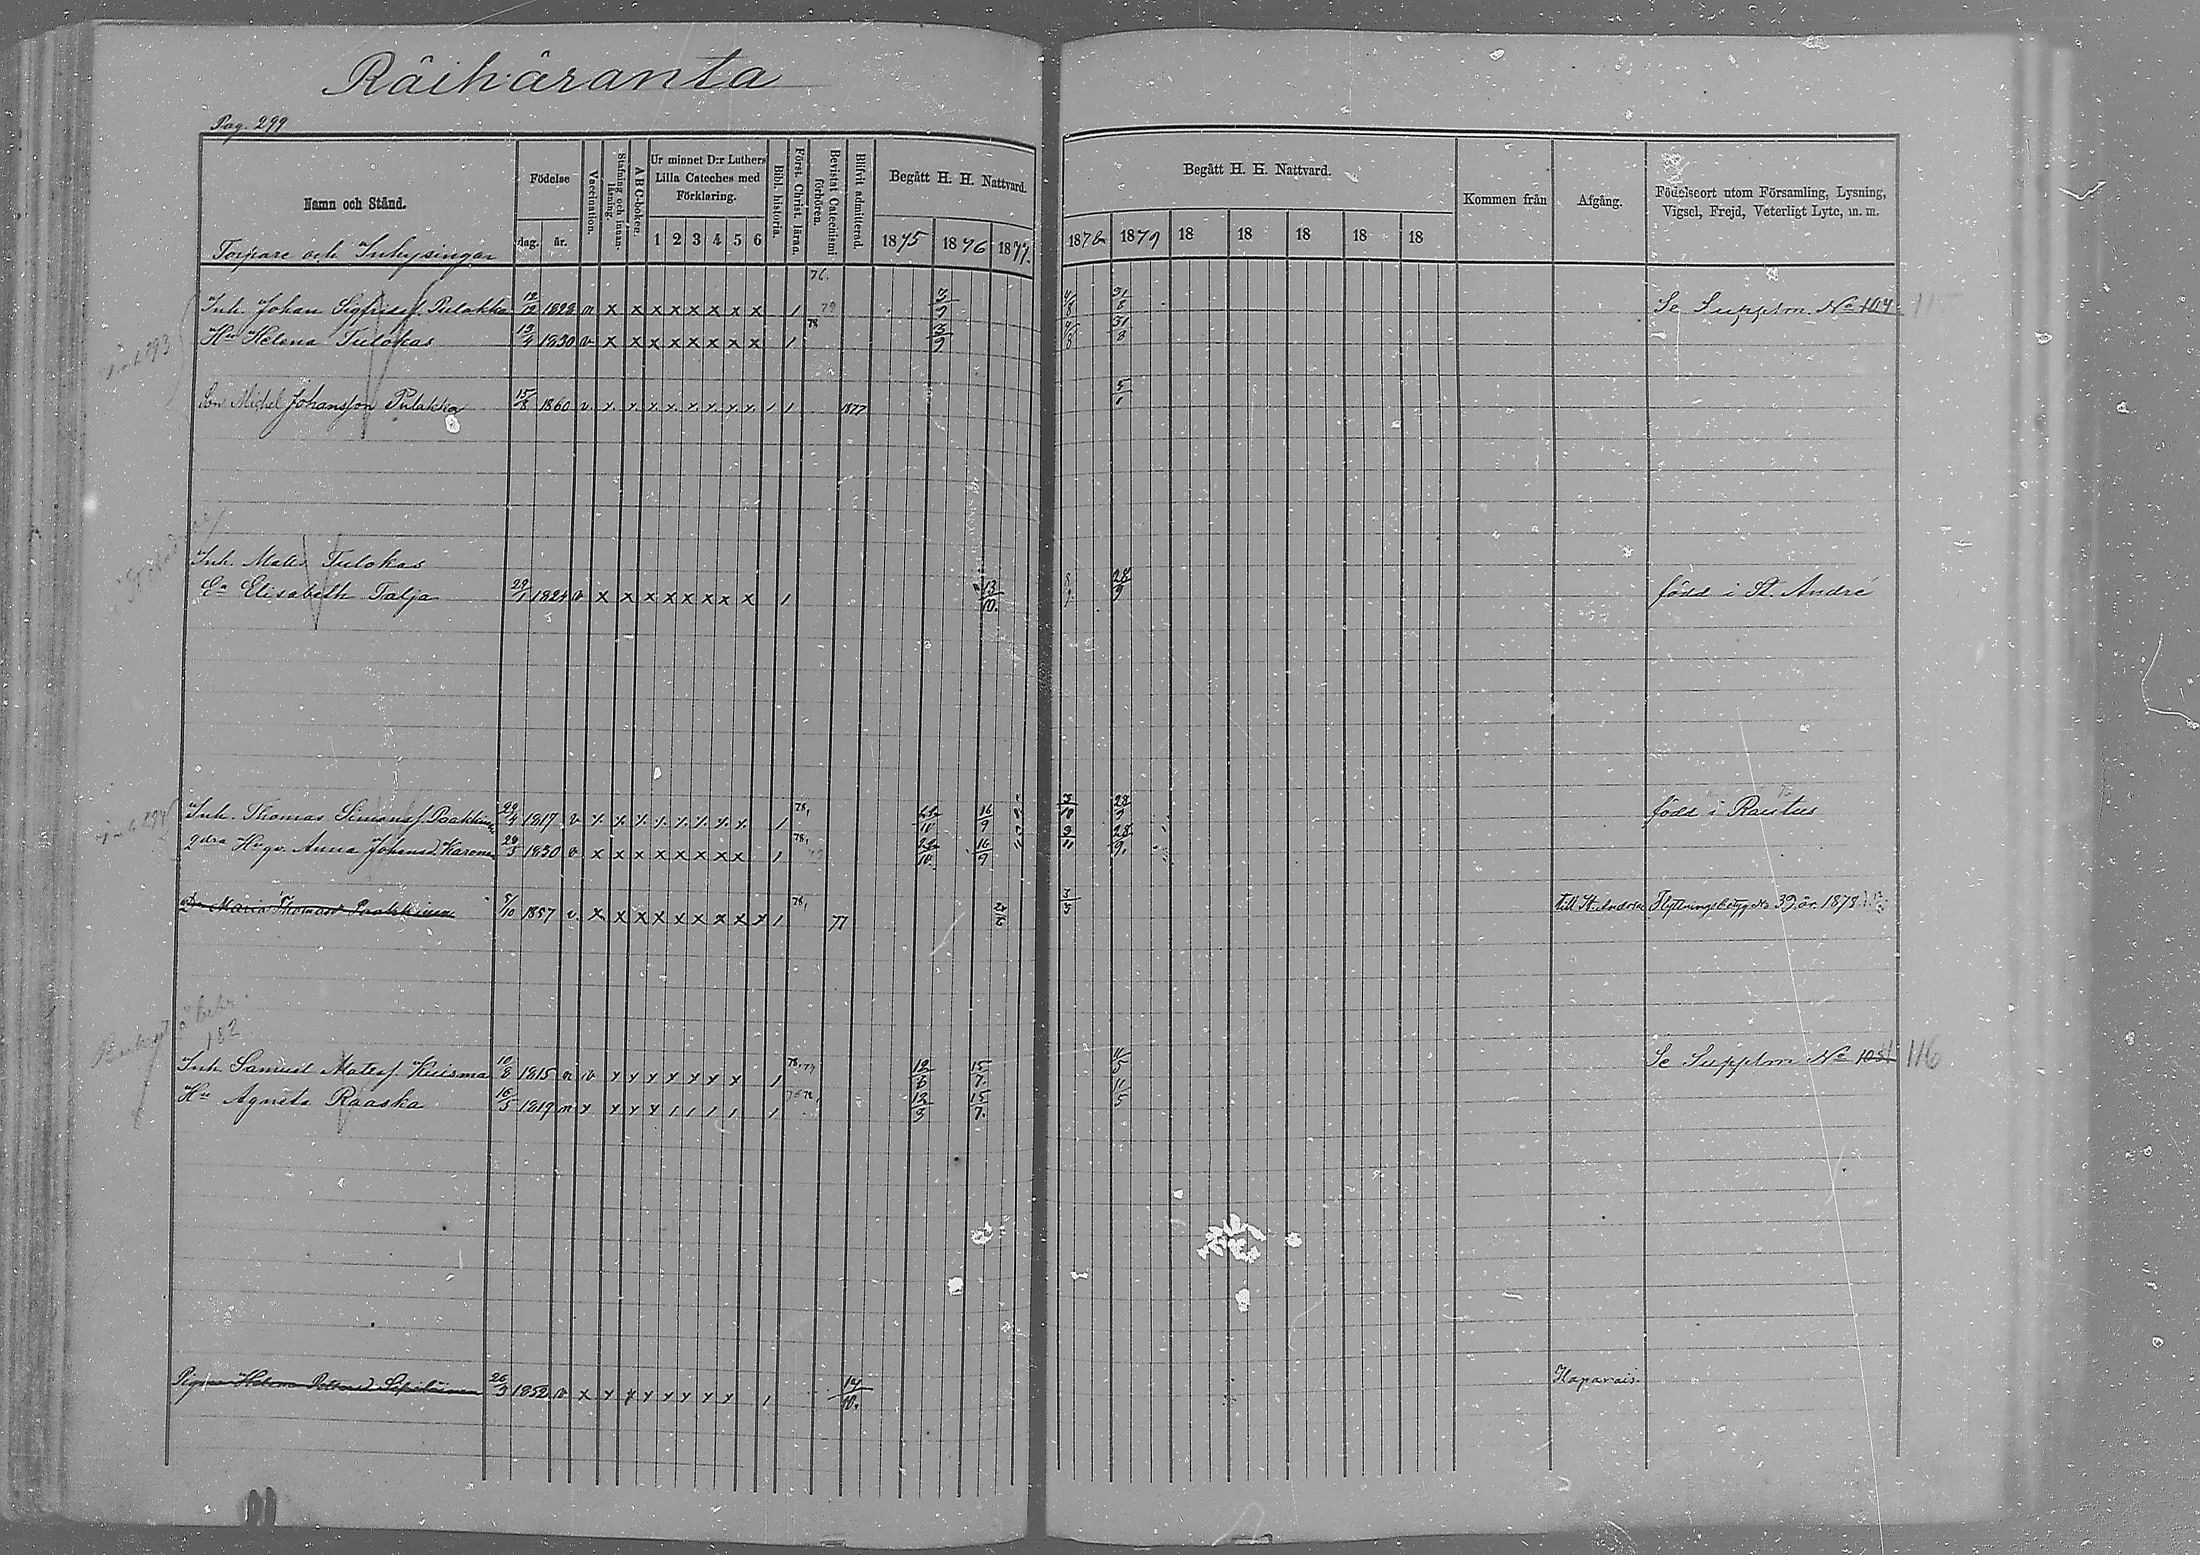 Räihäranta
Pag. 299
Namn och Stånd.
Födelse
dag. år.
Vaccination.
Stafning och innan-läsning.
ABC-boken.
Ur minnet D:r Luthers Lilla Cateches med Förklaring.
1 2 3 4 5 6
Bibl. historia.
Först. Christ. läran.
Bevistat Catechismi förhören.
Blifvit admitterad.
Begått H. H. Nattvard.
1875 1876 1877.
Begått H. H. Nattvard.
1878 1879 18 18 18 18 18
Kommen från
Afgång.
Födelseort utom Församling, Lysning, Vigsel, Frejd, Veterligt Lyte, m. m.
Torpare och Inhysingar
76.
Inh. Johan Sigfridsf. Pulakka 12/12 1828 n x x x x x x x x 1 79 3/9 4/8 31/8 Se Supplm. No 104
Hu Helena Tulokas 1830 v x x x x x x x x 1 78 3/9 4/8 31/8
Son Michel Johansson Pulakka 15/8 1860 v x x x x x x x x 1 1 1877 5/1
Inh. Matts Tulokas
Ea Elisabeth Talja 29/1 1824 v x x x x x x x x 1 13/10. 28/9 född i St. André
Inh. Thomas Simonsf. Paakkinen 29/4 1817 v x x x x x x x x 1 78, 16/9 3/10 28/9 född i Rautus
2dra Hu Anna Johansd. Karonen 1830 v x x x x x x x x 1 78, 16/9 28/9.
Dr Maria Thomasd. Paakkinen 5/10 1857 v. x x x x x x x x x 1 78, 77 3/3 till St. Andreæ Flyttningsbetyg No 39. år 1878
182
Inh. Samuel Matsf. Kuisma 10/8 1815 n v x x x x x x x 1 78, 79 12/3 15/7. 11/5 Se Supplm No 105 116
Hu Agneta Raaska 16/5 1819 n x x x x 1 1 1 1 1 12/3 15/7. 11/5
Pigan Helena Pettersd. 26/3 1852 v x x x x x x x x 1 14/10. Haparais